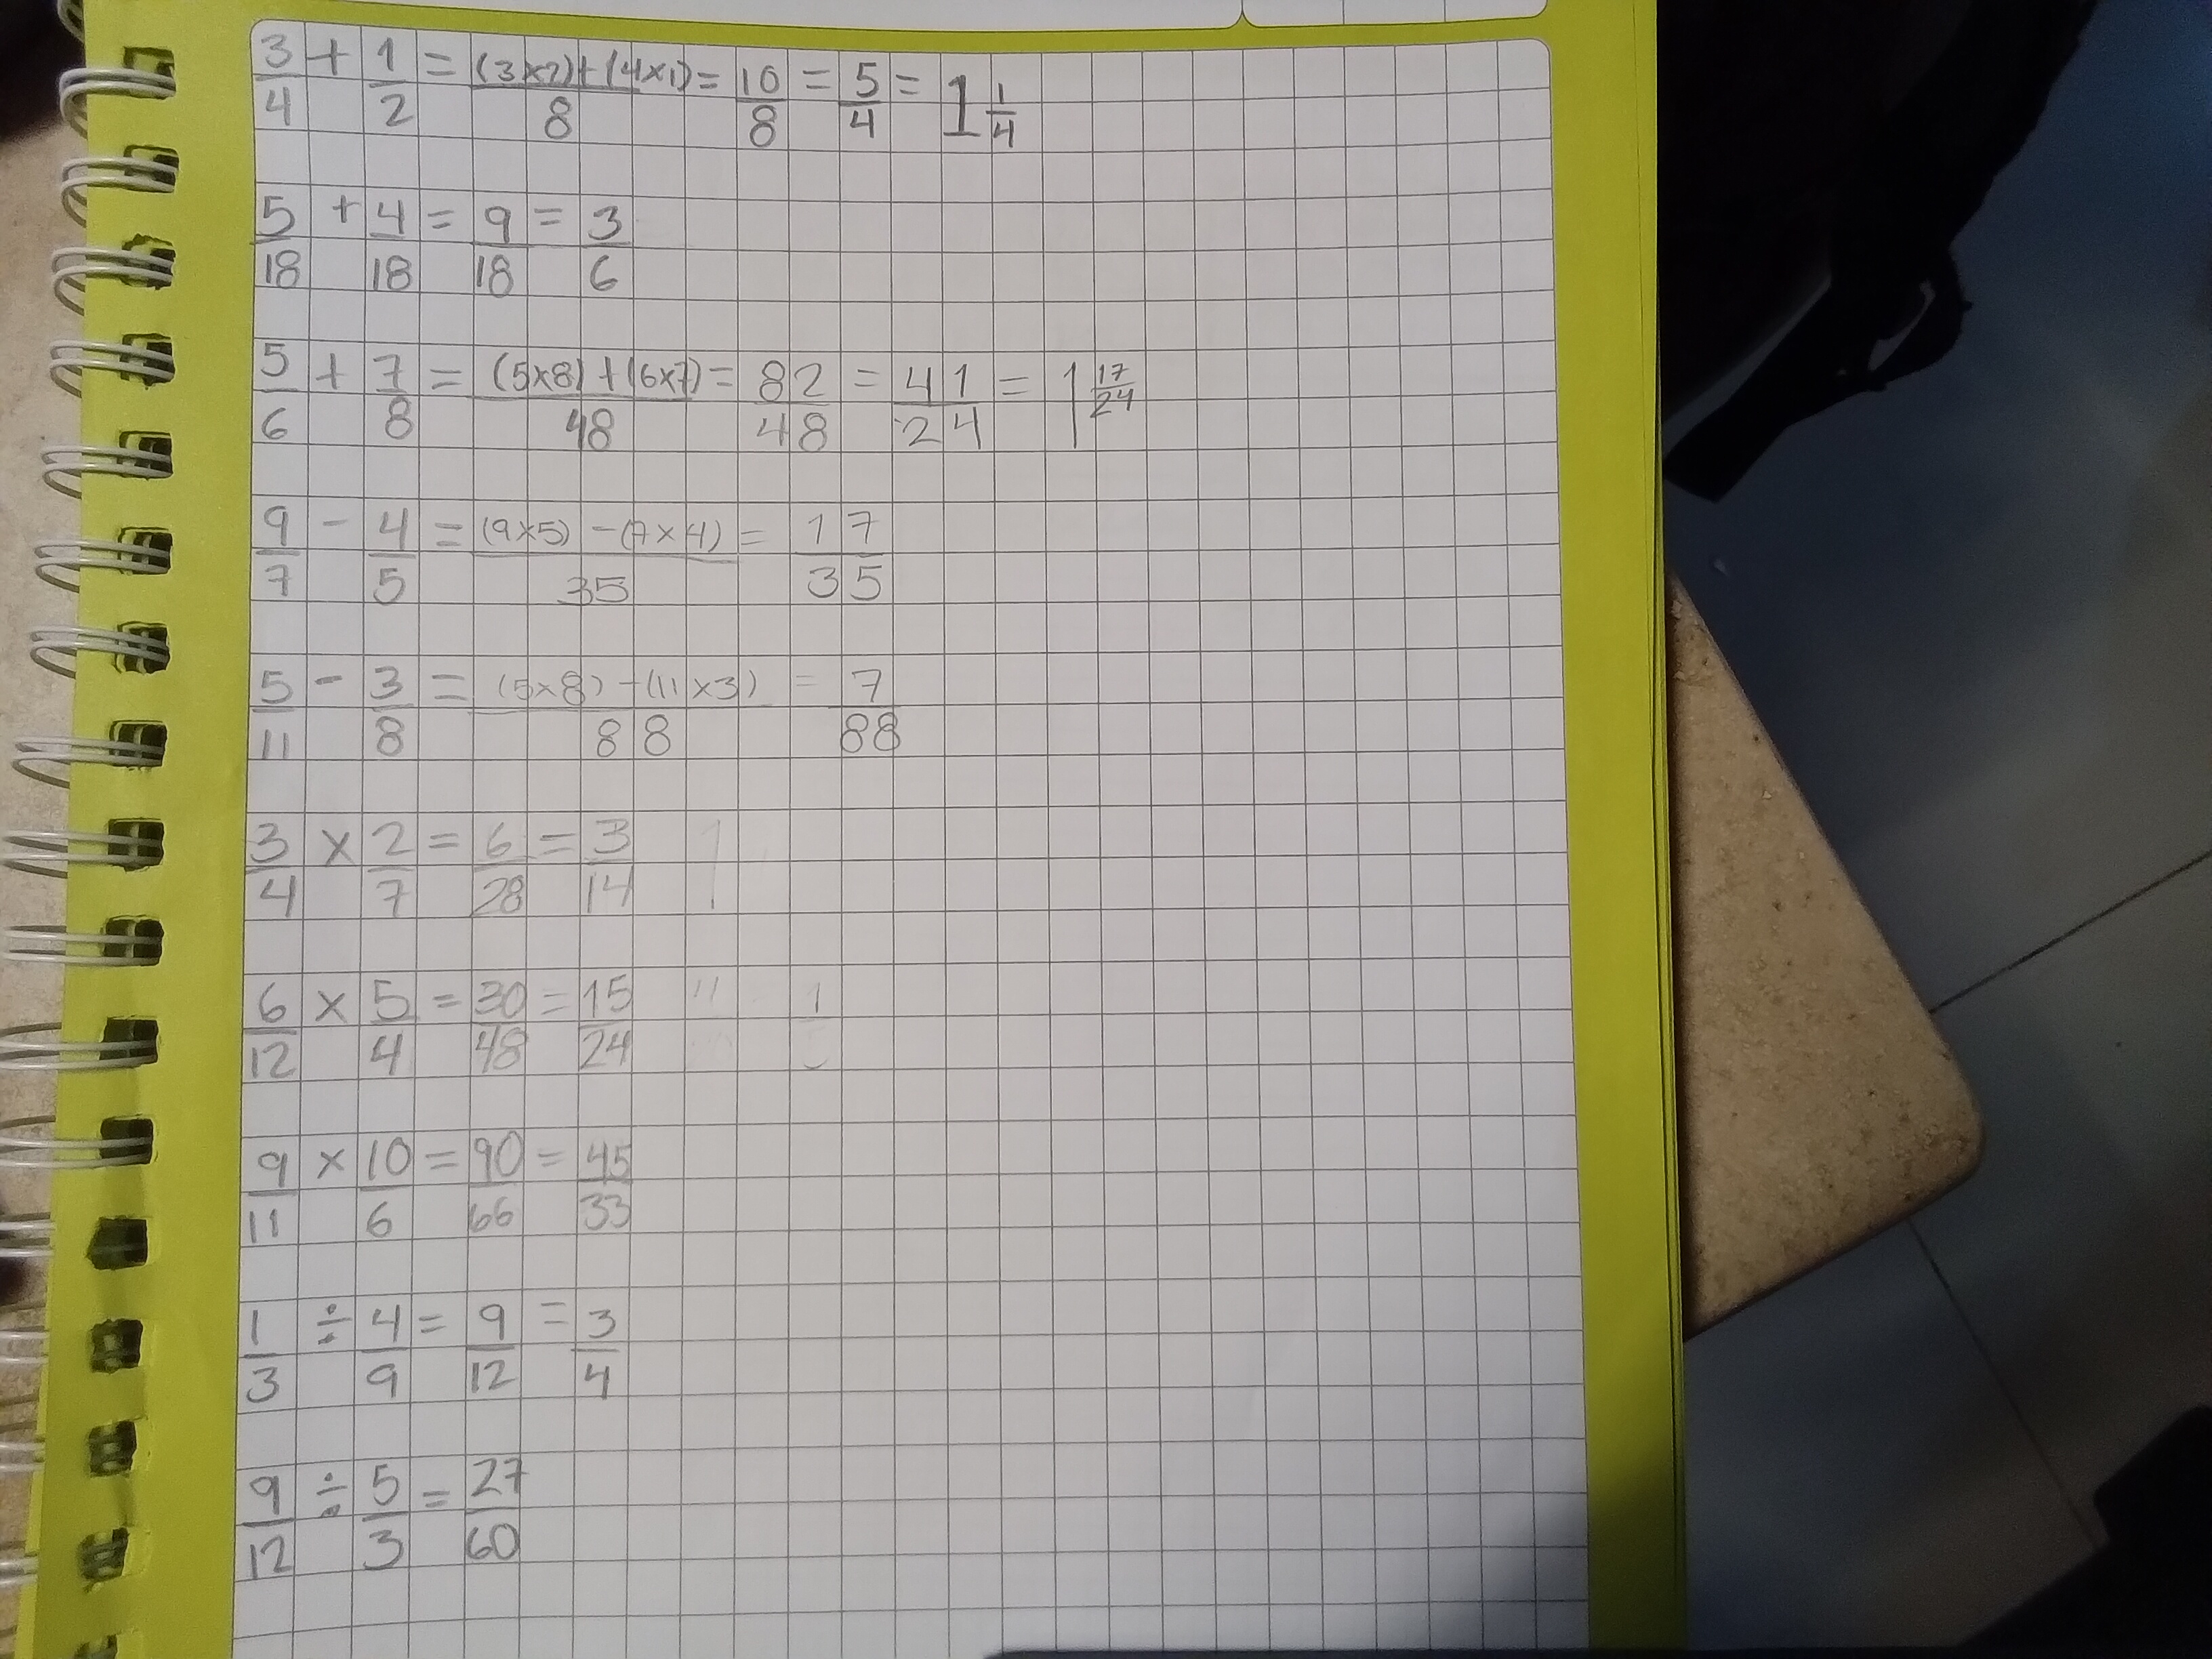 3/4 + 1/2 = (3x2)+(4x1)/8 = 10/8 = 5/4 = 1 1/4
5/18 + 4/18 = 9/18 = 3/6
5/6 + 7/8 = (5x8)+(6x7)/48 = 82/48 = 41/24 = 1 17/24
9/7 - 4/5 = (9x5)-(7x4)/35 = 17/35
5/11 - 3/8 = (5x8)-(11x3)/88 = 7/88
3/4 x 2/7 = 6/28 = 3/14
6/12 x 5/4 = 30/48 = 15/24
9/11 x 10/6 = 90/66 = 45/33
1/3 ÷ 4/9 = 9/12 = 3/4
9/12 ÷ 5/3 = 27/60